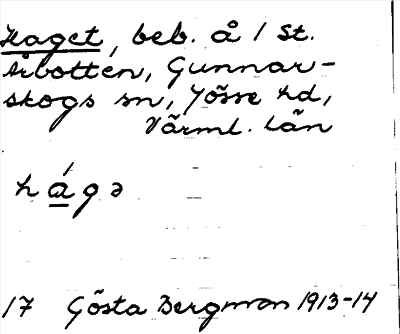 Haget, beb. å 1 st.
Årbotten, Gunnar-
skogs sn, Jösse hd,
Värml. län
hágə
17 Gösta Bergman 1913-14